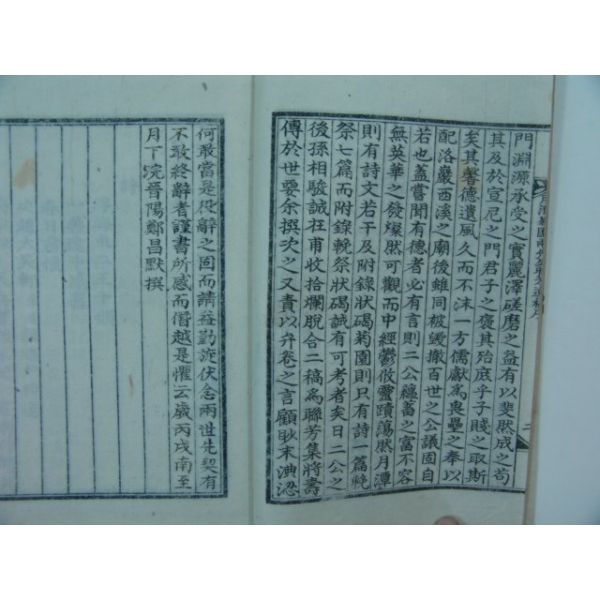 門淵源承受之實麗澤磋磨之益有以斐然成之苟
其及於宣尼之門君子之褒其殆庶乎子賤之取斯
矣其馨德遺風久而不沫一方儒獻爲畏壘之奉以
配洛巖西溪之廟後雖同被毀撤百世之公議固自
若也盖嘗聞有德者必有言則二公蘊蓄之富不容
無英華之發燦然可觀而中經鬱攸靈蹟蕩然月潭
則有詩文若干及附錄狀碣菊園則只有詩一篇輓
祭七篇而附錄輓祭狀碣誠有可考者矣日二公之
後孫相駿誠在甫收拾爛脫合二稿爲聯芳集將壽
傳於世要余撰次之又責以弁卷之言顧耿末淟涊
何敢當是役辭之固而請益勤旋伏念兩世先契有
不敢終辭者謹書所感而僭越是懼云歲丙戌南至
月下浣晉陽鄭昌默撰